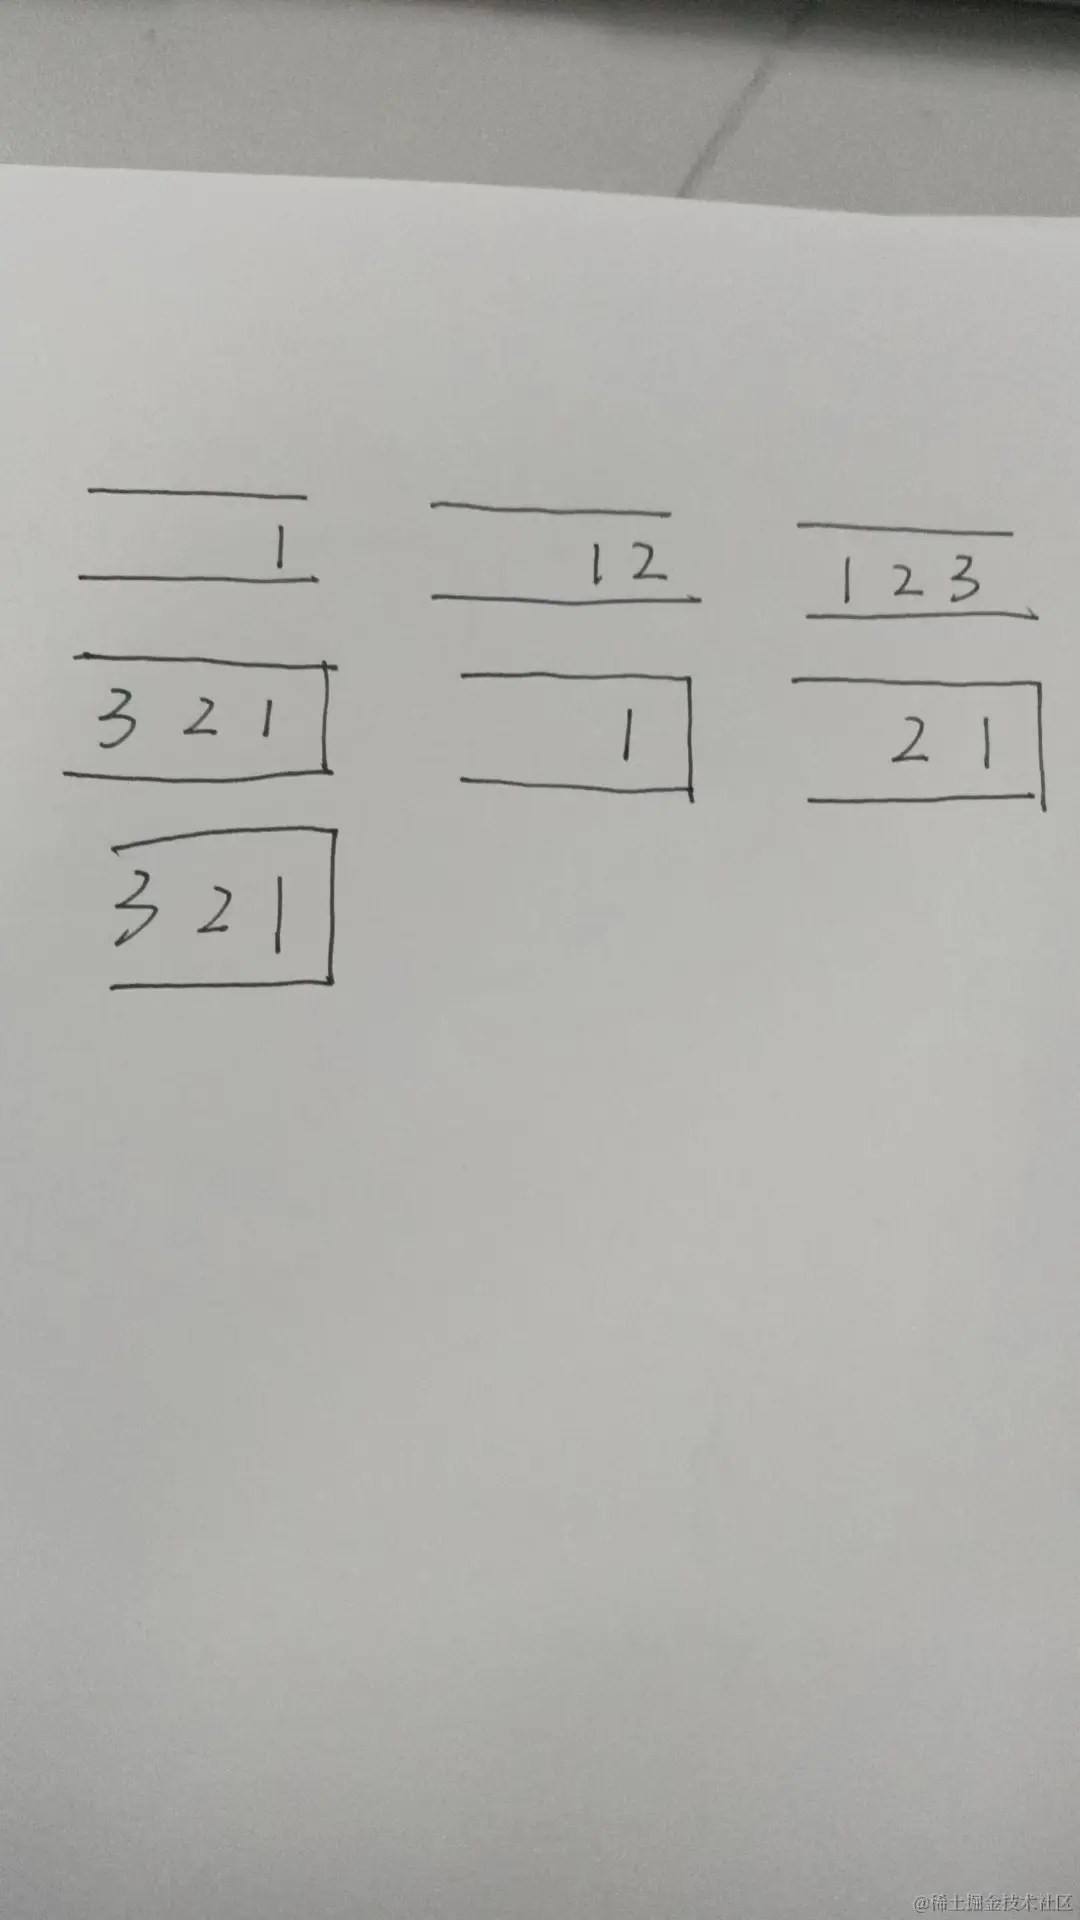 1 12 123
321 1 21
321
@稀土掘金技术社区